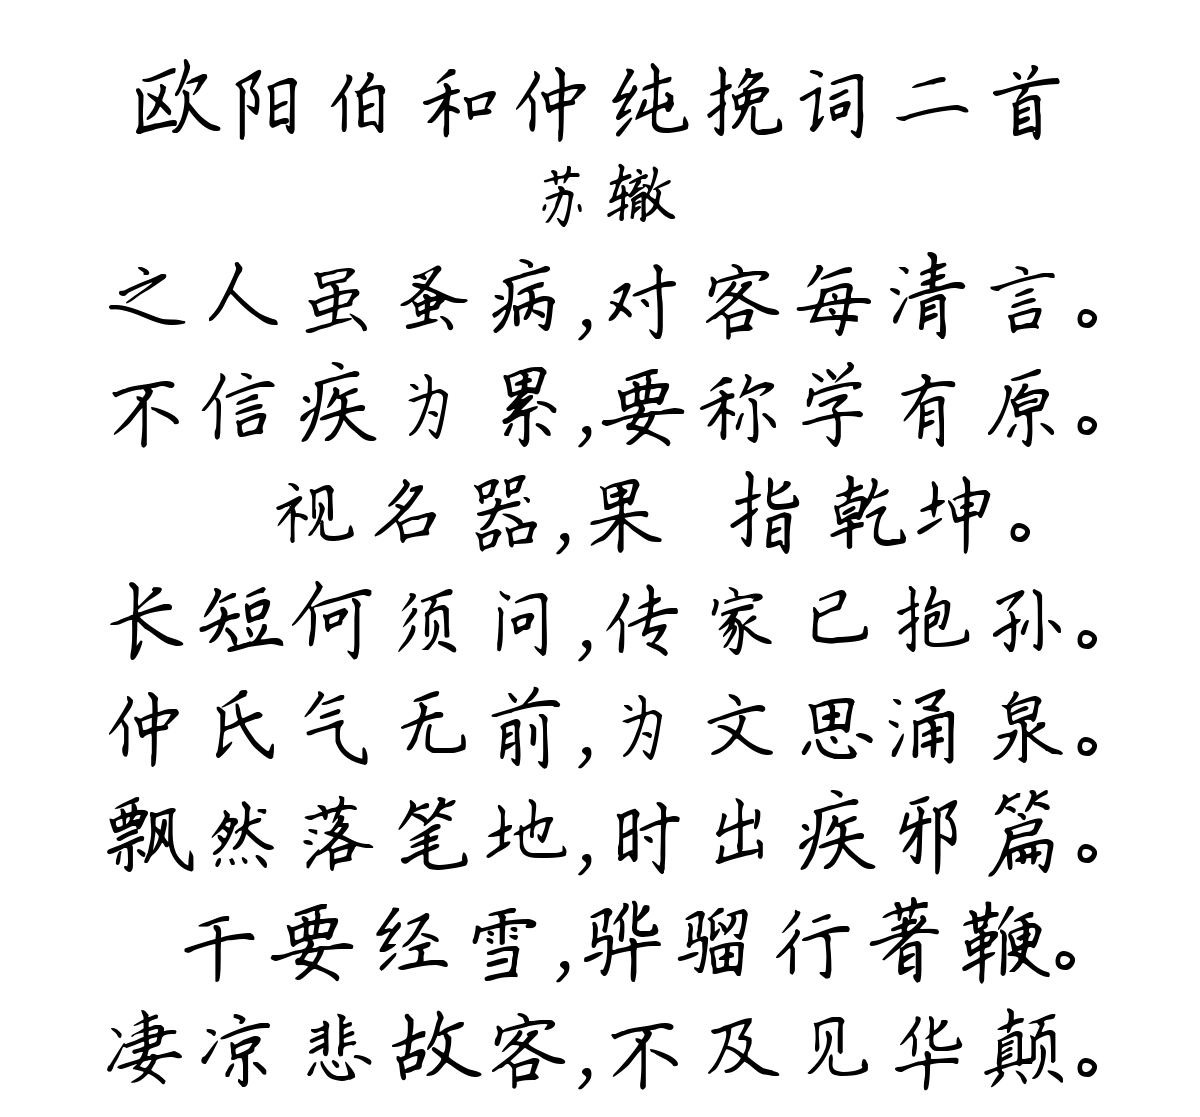 欧阳伯和仲纯挽词二首
苏辙
之人虽蚤病,对客每清言。
不信疾为累,要称学有原。
视名器,果 指乾坤。
长短何须问,传家已抱孙。
仲氏气无前,为文思涌泉。
飘然落笔地,时出疾邪篇。
干要经雪,骅骝行著鞭。
凄凉悲故客,不及见华颠。